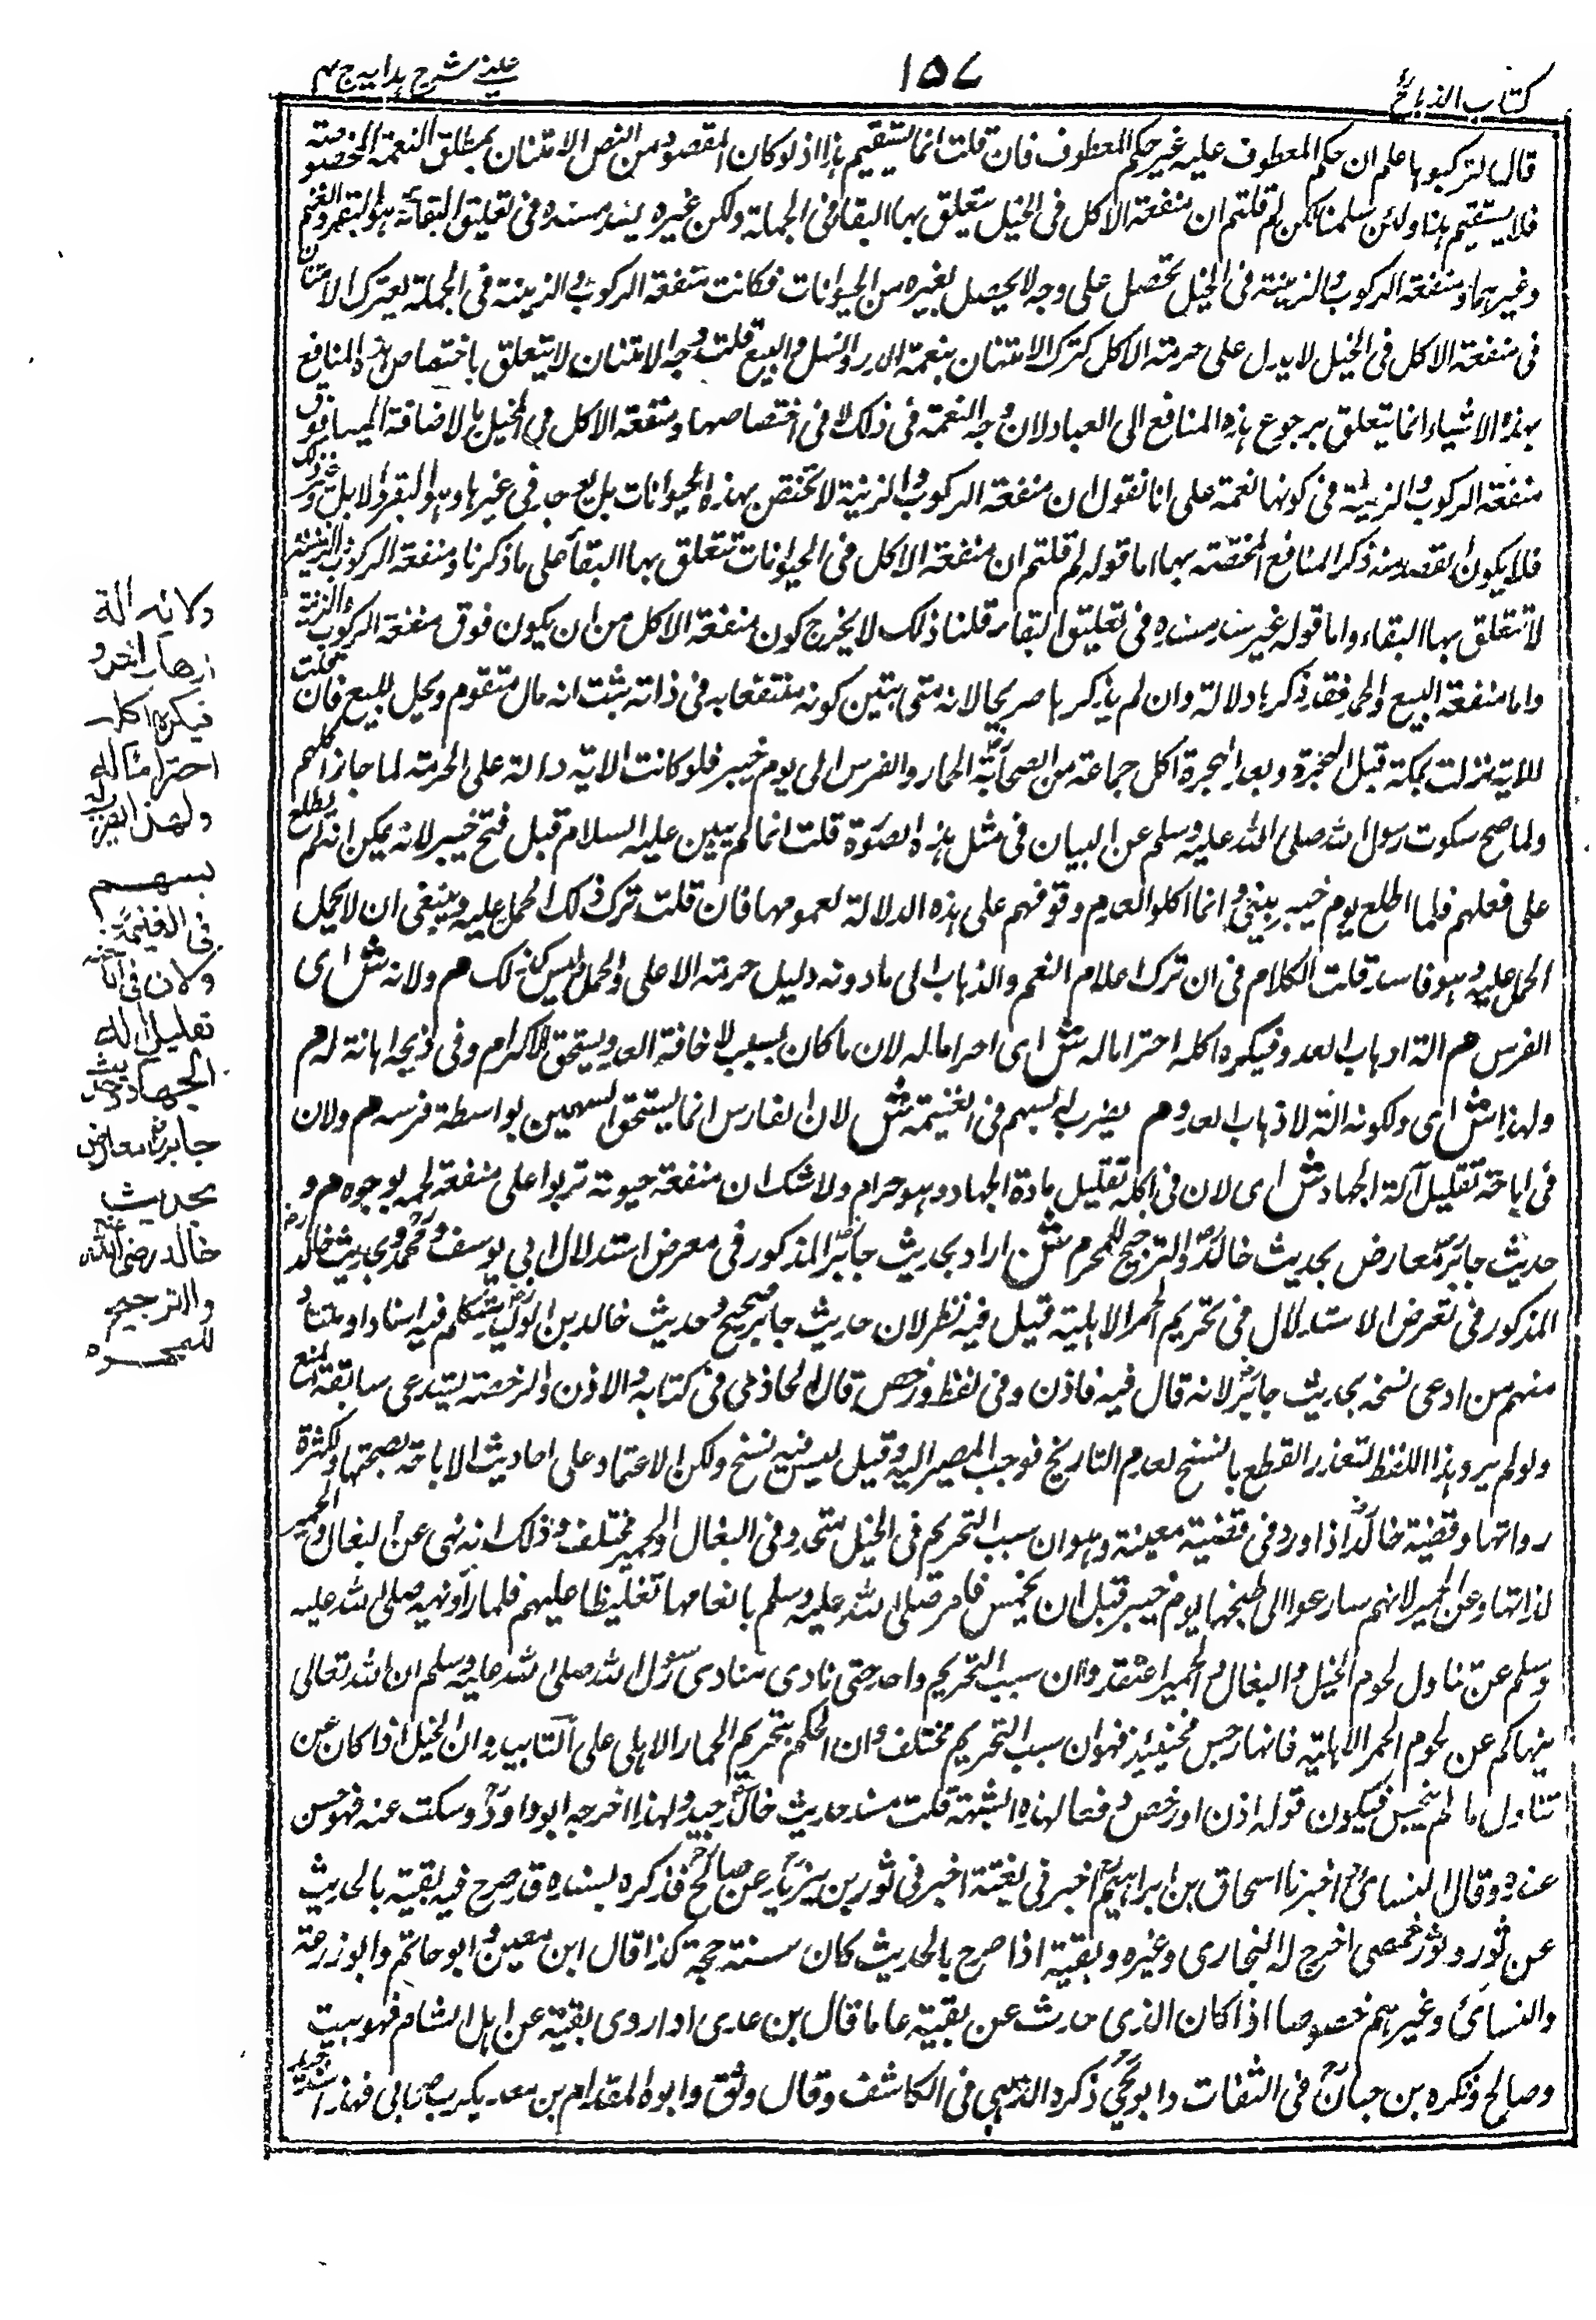 كتاب الذبائح
١٥٧
عيني شرح هدايه ج ٤
قال لتركبوها علم ان حكم المعطوف عليه غير حكم المعطوف فان قلت انما يستقيم هذا اذ لو كان المقصود من النص الامتنان بمطلق النعمة المخصوصة
فلا يستقيم هذا ولئن سلمنا لكن لم قلتم ان منفعة الاكل فى الخيل يتعلق بها البقاء فى الجملة ولكن غيره يسد مسده فى تعليق البقاء به هو البقر والغنم
وغيرهما ومنفعة الركوب والزينة فى الخيل تحصل على وجه لا يحصل بغيره من الحيوانات فكانت منفعة الركوب والزينة فى الجملة بعترك الامتنان
فى منفعة الاكل فى الخيل لا يدل على حرمة الاكل كترك الامتنان بنعمة الدر والنسل والبيع قلت وجه الامتنان لا يتعلق باختصاص هذه المنافع
بهذه الاشياء انما يتعلق برجوع هذه المنافع الى العباد لان وجه النعمة فى ذلك لا فى اختصاصها ومنفعة الاكل فى الخيل بالاضافة اليها فوق
منفعة الركوب والزينة فى كونها نعمة على انا نقول ان منفعة الركوب والزينة لا تختص بهذه الحيوانات بل يوجد فى غيرها وهو البقر والابل وغير ذلك
فلا يكون القصد منه ذكر المنافع المختصة بها اما قوله لم قلتم ان منفعة الاكل فى الحيوانات تتعلق بها البقاء على ما ذكرنا ومنفعة الركوب والزينة
لا تتعلق بها البقاء واما قوله غيره يسد مسده فى تعليق البقاء به قلنا ذلك لا يخرج كون منفعة الاكل من ان يكون فوق منفعة الركوب والزينة
واما منفعة البيع والحمل فقد ذكرها دلالة وان لم يذكرها صريحا لانه متى تبين كونه منتفعا به فى ذاته يثبت انه مال متقوم ويحل للبيع فان قلت
للاية نزلت بمكة قبل الهجرة وبعد الهجرة اكل جماعة من الصحابة الحمار والفرس الى يوم خيبر فلو كانت الاية دالة على الحرمة لما جاز اكلهم
ولما صح سكوت رسول الله صلى الله عليه وسلم عن البيان فى مثل هذه الصورة قلت انما لم يبين عليه السلام قبل فتح خيبر لانه يمكن انه لم يطلع
على فعلهم فلما اطلع يوم خيبر بين وانما اكلوا لعدم وقوفهم على هذه الدلالة لعمومها فان قلت ترك ذلك الحمل عليه وينبغى ان لا يحمل
الحمل عليه وهو فاسد قلت الكلام فى ان ترك اعلام النعم والذهاب الى ما دونه دليل حرمة الاعلى والحمل ليس كذلك م ولانه ش اى
الفرس م الة ارهاب العدو فيكره اكله احتراما له ش اى احراما له لان ما كان بسبب لاخافة العدو يستحق الاكرام وفى ذبحه اهانة له م
ولهذا ش اى ولكونه الة لارهاب العدو م يضرب له بسهم فى الغنيمة ش لان الفارس انما يستحق السهمين بواسطة فرسه م ولان
فى اباحته تقليل آلة الجهاد ش اى لان فى اكله تقليل مادة الجهاد وهو حرام ولا شك ان منفعة حيوته تربوا على منفعة لحمه بوجوه م و
حديث جابر معارض بحديث خالد والترجيح للمحرم ش اراد بحديث جابر المذكور فى معرض استدلال ابى يوسف ومحمد وبحديث خالد
المذكور فى معرض الاستدلال فى تحريم الحمر الاهلية قيل فيه نظر لان حديث جابر صحيح وحديث خالد بن الوليد متكلم فيه اسنادا ومتنا و
منهم من ادعى نسخه بحديث جابر لانه قال فيه فاذن وفى لفظ ورخص قال الحازمى فى كتابه والاذن والرخصة يستدعى سابقة المنع
ولو لم يرو هذا اللفظ لتعذر القطع بالنسخ لعدم التاريخ فوجب المصير اليه وقيل ليس فيه نسخ ولكن الاعتماد على احاديث الاباحة لصحتها ولكثرة
رواتها وقضية خالد اذ اورد فى قضية معينة وهو ان سبب التحريم فى الخيل متحد وفى البغال والحمير مختلف وذلك انه نهى عن البغال والحمير
لذاتها وعن الحمير لانهم سارعوا الى طبخها يوم خيبر قبل ان يخمس فامر صلى الله عليه وسلم بالغائها تغليظا عليهم فلما راو نهيه صلى الله عليه
وسلم عن تناول لحوم الخيل والبغال والحمير اعتقدوا ان سبب التحريم واحد حتى نادى منادى رسول الله صلى الله عليه وسلم ان الله تعالى
ينهاكم عن لحوم الحمر الاهلية فانها رجس فحينئذ فهموا ان سبب التحريم مختلف وان الحكم بتحريم الحمار الاهلى على التابيد وان الخيل اذا كان عن
تناول ما لم يخمس فيكون قوله اذن او رخص دفعا لهذه الشبهة قلت سند حديث خالد جيد ولهذا اخرجه ابو داود وسكت عنه فهو حسن
عنده وقال النسائى اخبرنا اسحاق بن ابراهيم اخبرنى بقية اخبرنى ثور بن يزيد عن صالح فذكره بسنده قد صرح فيه بقية بالحديث
عن ثور وثور حمصى اخرج له البخارى وغيره وبقية اذا صرح بالحديث كان سنده حجة كذا قال ابن معين وابو حاتم وابو زرعة
والنسائى وغيرهم خصوصا اذا كان الذى حدث عن بقية عاما قال بن عدى اذا روى بقية عن اهل الشام فهو ثبت
وصالح وذكره بن حبان فى الثقات وابو يحيى ذكره الذهبى فى الكاشف وقال وثق وابوه المقدام بن معديكرب صحابى فهذا سند جيد
ولانه الة
ارهاب العدو
فيكره اكله
احتراما له
ولهذا يضرب له
بسهم
فى الغنيمة
ولان فى اباحته
تقليل الة
الجهاد وحديث
جابر معارض
بحديث
خالد رضى الله عنه
والترجيح
للمحرم